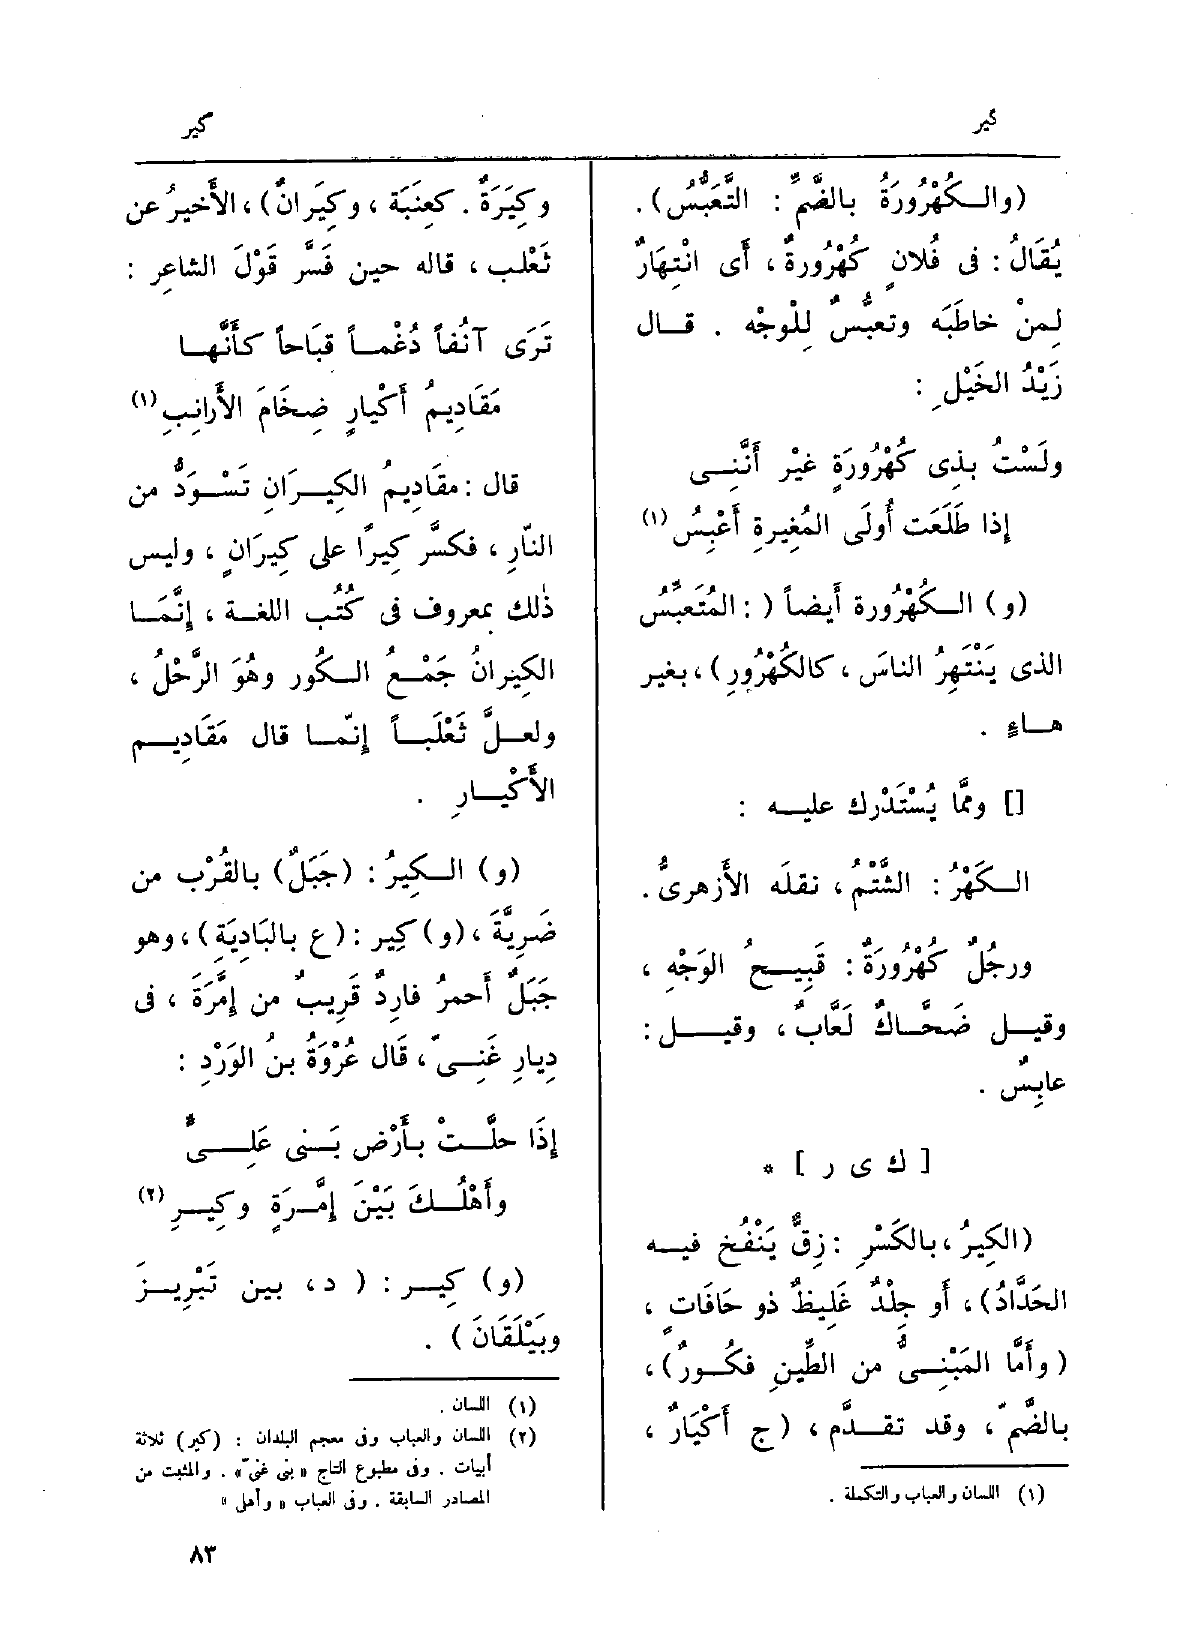 كير
كير
(والكُهْرُورَةُ بالضَّمِّ : التَّعَبُّسُ) .
يُقَالُ : فى فُلانٍ كُهْرُورةٌ ، أى انْتِهَارٌ
لِمنْ خاطَبَه وتعبُّسٌ لِلْوجْه . قال
زَيْدُ الخَيْلِ :
ولَسْتُ بِذِى كُهْرُورَةٍ غيْر أَنَّنِى
إذا طَلَعَت أُولَى المُغِيرةِ أَعْبِسُ (١)
(و) الكُهْرُورة أَيضاً ( : المُتَعبِّسُ
الذى يَنْتَهِرُ الناسَ ، كالكُهْرُورِ) ، بغير
هاءٍ .
[] ومّما يُسْتَدْرك عليه :
الكَهْرُ : الشَّتْمُ ، نقلَه الأَزهرىُّ .
ورجُلٌ كُهْرُورَةٌ : قَبِيحُ الوَجْهِ ،
وقيل ضَحَّاكٌ لَعَّابٌ ، وقيل :
عابِسٌ .
[ ك ى ر ] *
(الكِيرُ ، بالكَسْرِ : زِقٌّ يَنْفُخ فيه
الحَدَّادُ) ، أَو جِلْدٌ غَلِيظٌ ذو حَافَاتٍ ،
( وأَمَّا المَبْنِىُّ من الطِّينِ فكُورٌ) ،
بالضّمّ ، وقد تقدَّم ، (ج أَكْيَارٌ ،
(١) اللسان والعباب والتكملة .
وكِيَرَةٌ . كعِنَبَة ، وكِيَرانٌ) ، الأَخيرُ عن
ثَعْلب ، قاله حين فَسَّر قَوْلَ الشاعِرِ :
تَرَى آنُفاً دُغْماً قِبَاحاً كأَنَّها
مَقَادِيمُ أَكْيارٍ ضِخَامَ الأَرانِبِ (١)
قال : مقَادِيمُ الكِيرَانِ تَسْوَدُّ من
النّارِ ، فكسَّر كِيرًا على كِيرَانٍ ، وليس
ذٰلك بمعروف فى كُتُب اللغة ، إِنَّمَا
الكِيرانُ جَمْعُ الكُور وهُوَ الرَّحْلُ ،
ولعلَّ ثَعْلَباً إِنّما قال مَقَادِيم
الأَكْيارِ .
(و) الكِيرُ : (جَبَلٌ) بالقُرْب من
ضَرِيَّةَ ، (و) كِير : (ع بالبَادِيَةِ) ، وهو
جَبَلٌ أَحمرُ فارِدٌ قَرِيبٌ من إِمَّرَةَ ، فى
دِيارِ غَنِىّ ، قَال عُرْوَةُ بنُ الوَرْدِ :
إِذَا حلَّتْ بأَرْض بَنى عَلِىٍّ
وأَهْلُكَ بَيْنَ إِمَّرَةٍ وكِيرِ (٢)
(و) كِير : ( د ، بين تَبْرِيزَ
وبَيْلَقَانَ ) .
(١) اللسان .
(٢) اللسان والعباب وفى معجم البلدان : (كير) ثلاثة
أبيات . وفى مطبوع التاج « بنى غنىّ » . والمثبت من
المصادر السابقة . وفى العباب « وأهلى »
٨٣